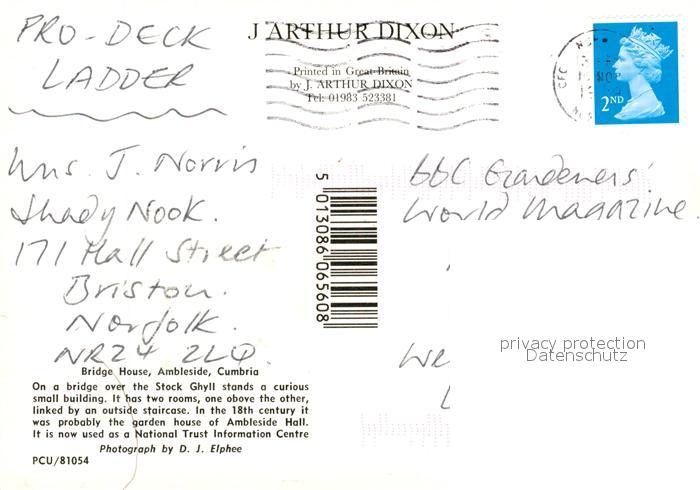 PRO-DECK
LADDER
J ARTHUR DIXON
Printed in Great Britain
by J. ARTHUR DIXON
Tel: 01983 523381
2ND
Mrs. J. Norris
Shady Nook.
171 Hall Street
Briston.
Norfolk.
NR24 2LQ.
5 013086 065608
BBC Gardeners'
World Magazine.
privacy protection
Datenschutz
Bridge House, Ambleside, Cumbria
On a bridge over the Stock Ghyll stands a curious
small building. It has two rooms, one obove the other,
linked by an outside staircase. In the 18th century it
was probably the garden house of Ambleside Hall.
It is now used as a National Trust Information Centre
Photograph by D. J. Elphee
PCU/81054